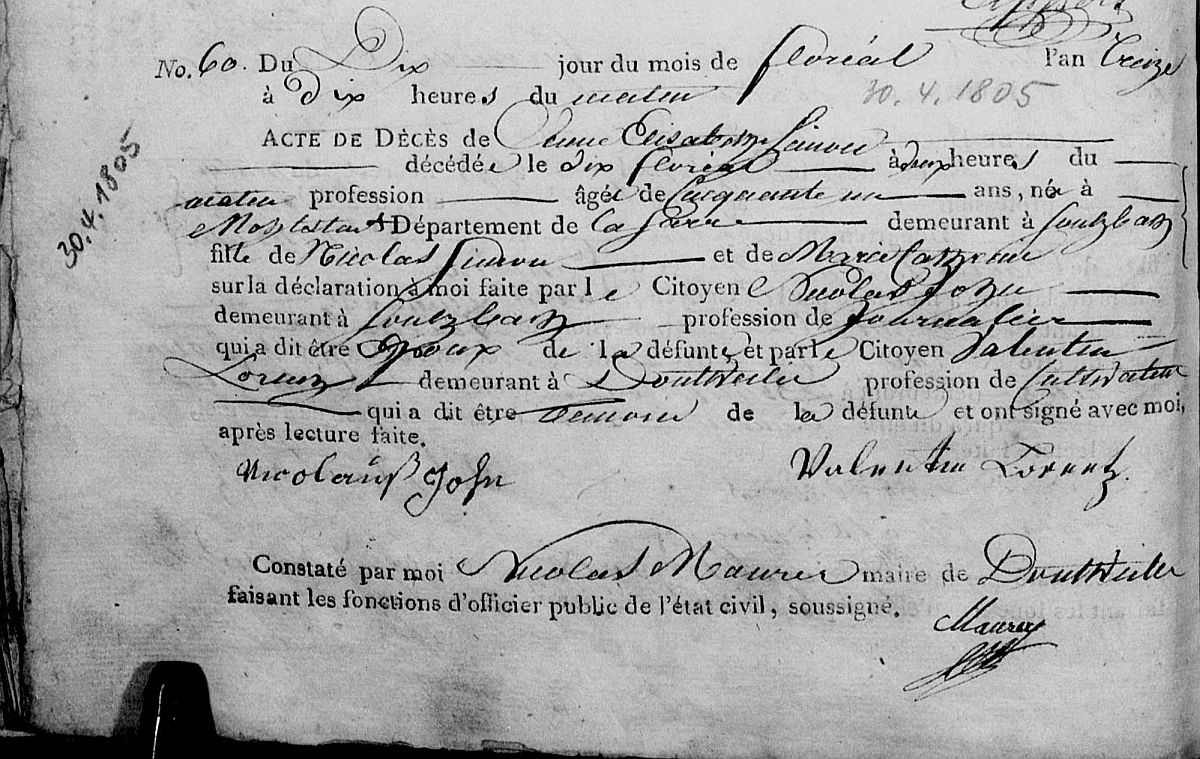 No. 60. Du Dix jour du mois de floréal l'an treize
à dix heures du matin 30. 4. 1805
ACTE DE DÉCÈS de Anne Elisabethe Simon
30.4.1805
décédée le dix floréal à deux heures du
matin profession âgée de Cinquante un ans, née à
Département de la Sarre demeurant à Soultzbach
fille de Nicolas Simon et de Marie Catherine
sur la déclaration à moi faite par le Citoyen Nicolas John
demeurant à Soultzbach profession de Journalier
qui a dit être Epoux de la défunte et par le Citoyen Valentin
Lorentz demeurant à Doutweiler profession de Cultivateur
qui a dit être temoin de la défunte et ont signé avec moi,
après lecture faite.
Nicolauß John Valentin Lorentz.
Constaté par moi Nicolas Maurer maire de Doutweiler
faisant les fonctions d'officier public de l'état civil, soussigné.
Maurer